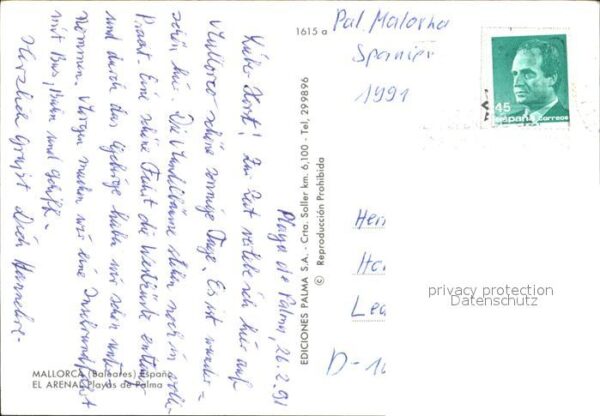 1615 a
Pal. Malorka
Spanien
1991
45
España correos
Playa de Palma, 26.2.91
Lieber Horst! Zur Zeit verlebe ich hier auf
Mallorca schöne sonnige Tage. Es ist wunder-
schön hier. Die Mandelbäume stehen noch in voller
Pracht. Eine schöne Fahrt die Westküste entlang
und durch das Gebirge haben wir schon unter-
nommen. Morgen machen wir eine Inselrundfahrt
mit Bus, Bahn und Schiff.
Herzlich grüßt Dich Hannelore.
EDICIONES PALMA S.A. - Crta. Soller km. 6,100 - Tel. 299896
© Reproducción Prohibida
Her
Ho
Le
D-10
privacy protection
Datenschutz
MALLORCA (Baleares) España
EL ARENAL Playas de Palma